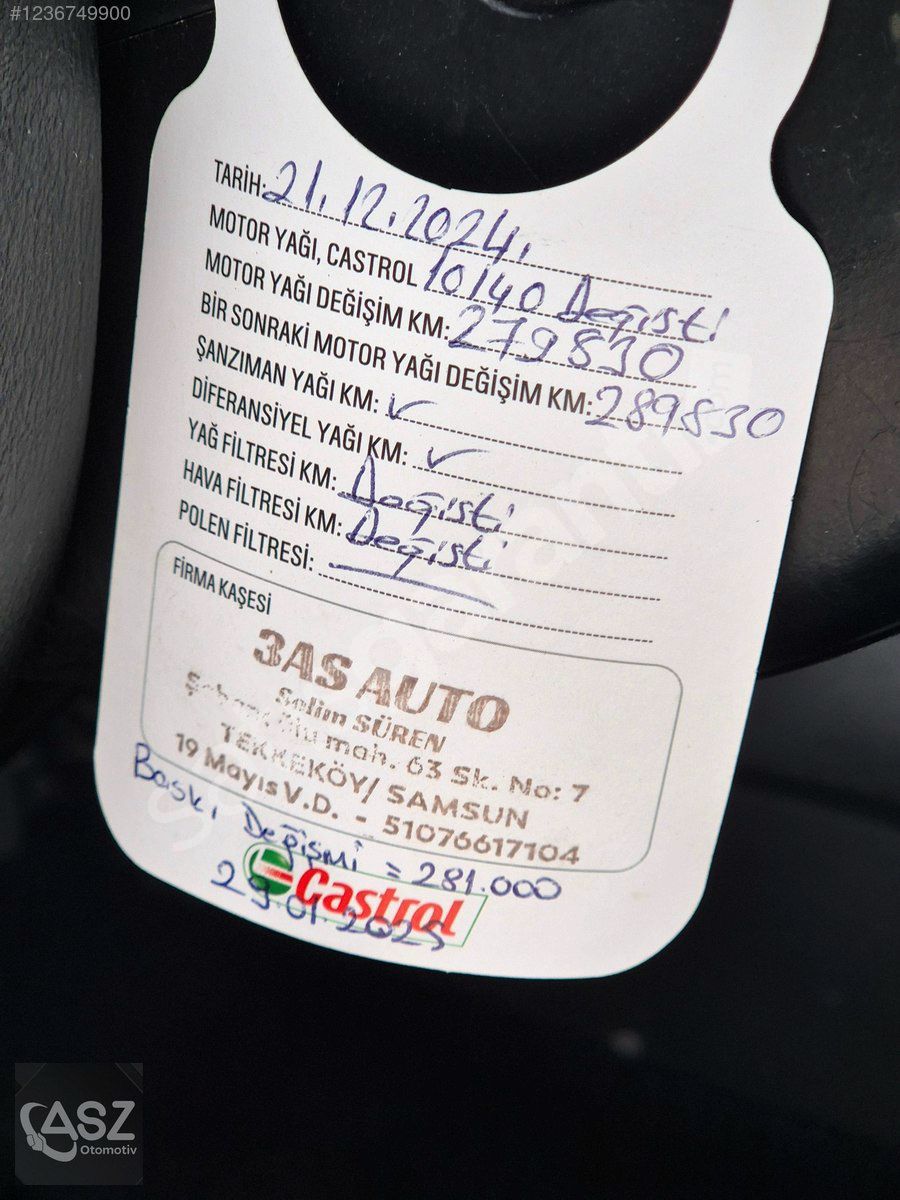 #1236749900
TARİH: 21.12.2024.
MOTOR YAĞI, CASTROL 10/40 Değişti
MOTOR YAĞI DEĞİŞİM KM: 279830
BİR SONRAKİ MOTOR YAĞI DEĞİŞİM KM: 289830
ŞANZIMAN YAĞI KM: ✓
DİFERANSİYEL YAĞI KM: ✓
YAĞ FİLTRESİ KM: Değişti
HAVA FİLTRESİ KM: Değişti
POLEN FİLTRESİ:
FİRMA KAŞESİ
3AS AUTO
Selim SÜREN
mah. 63 Sk. No: 7
TEKKEKÖY/ SAMSUN
19 Mayıs V.D. - 51076617104
Baskı Değişmi = 281.000
Castrol
29.01.2025
ASZ
Otomotiv